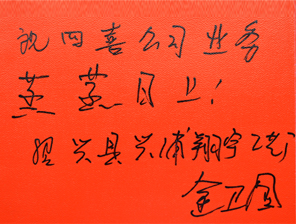 祝四喜公司业务
蒸蒸日上！
绍兴县兴浦翔宇工艺厂
金卫国